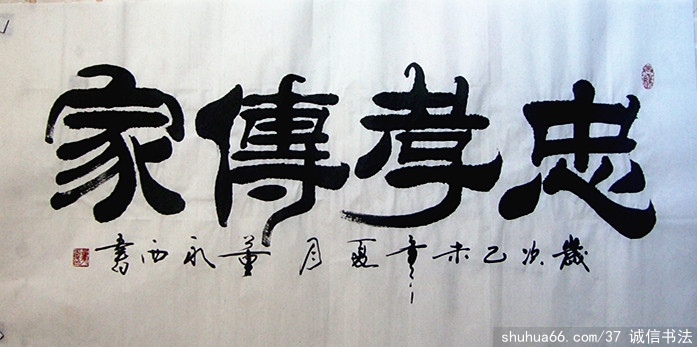 忠孝傳家
歲次乙未年夏月董永西書
shuhua66.com/37 诚信书法